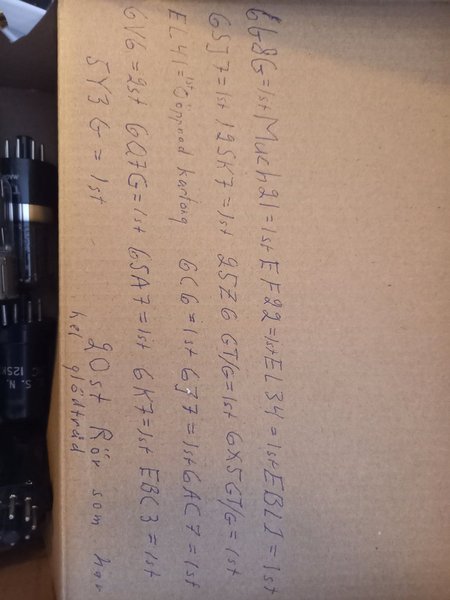 6G8G=1st Much21=1st EF22=1st EL34=1st EBL1=1st
6SJ7=1st 12SK7=1st 25Z6 GT/G=1st 6X5GT/G=1st
EL41=1st Oöppnad kartong 6C6=1st 6J7=1st 6AC7=1st
6V6=2st 6Q7G=1st 6SA7=1st 6K7=1st EBC3=1st
5Y3 G=1st
20st Rör som har
hel glödtråd
S. N.
12SK